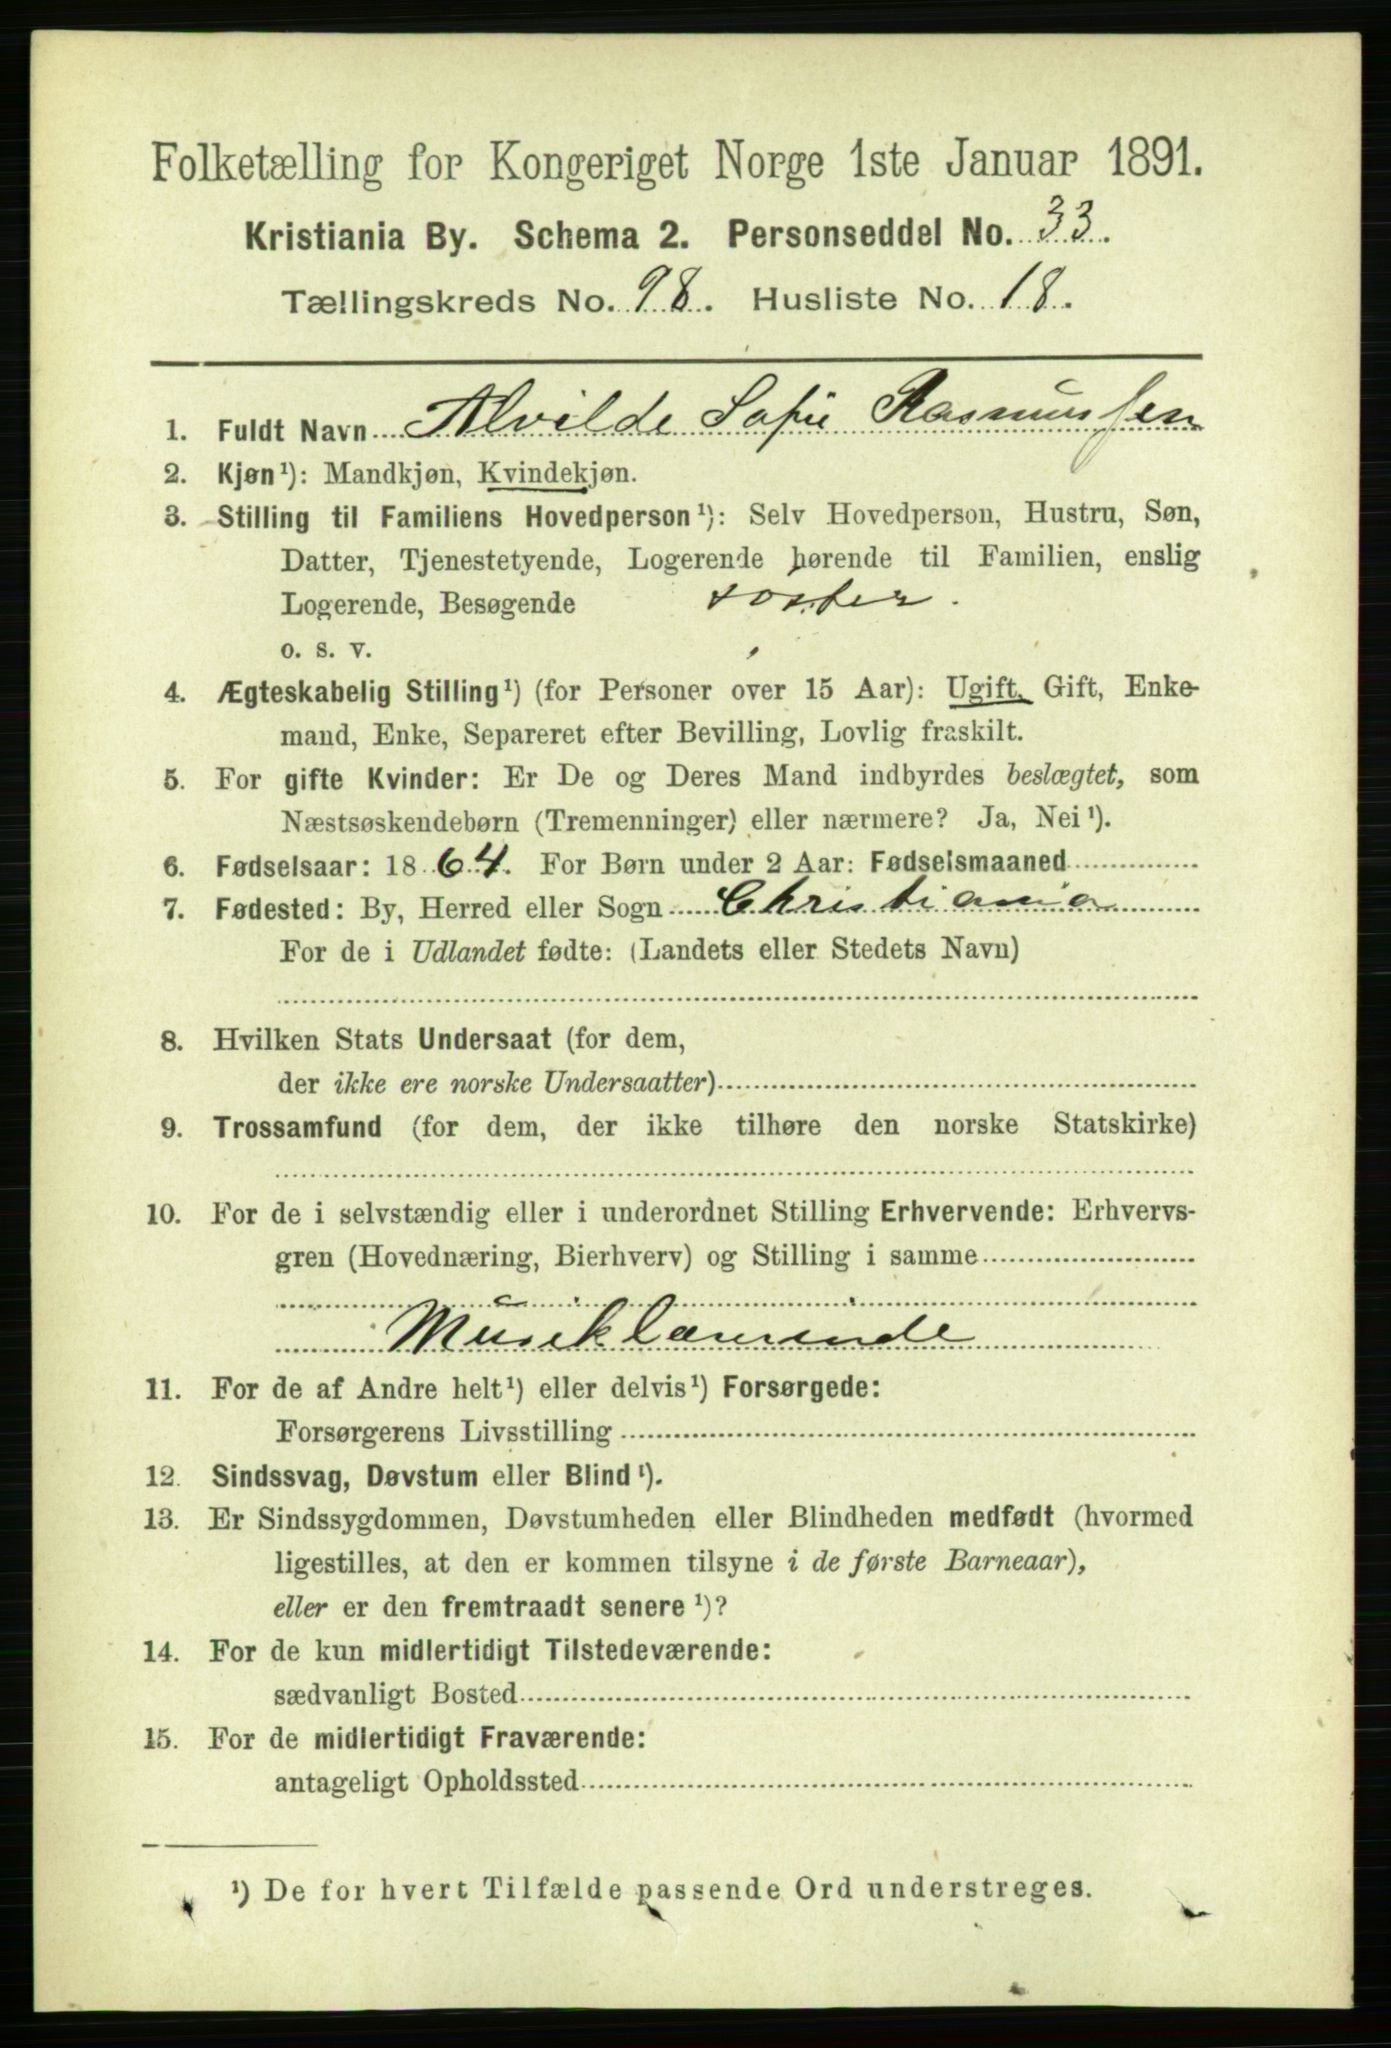 Folketælling for Kongeriget Norge 1ste Januar 1891.
Kristiania By. Schema 2. Personseddel No. 33.
Tællingskreds No. 98. Husliste No. 18.
1. Fuldt Navn Alvilde Sofie Rasmussen
2. Kjøn¹): Mandkjøn, Kvindekjøn.
3. Stilling til Familiens Hovedperson¹): Selv Hovedperson, Hustru, Søn,
Datter, Tjenestetyende, Logerende hørende til Familien, enslig
Logerende, Besøgende søster.
o. s. v.
4. Ægteskabelig Stilling¹) (for Personer over 15 Aar): Ugift, Gift, Enke-
mand, Enke, Separeret efter Bevilling, Lovlig fraskilt.
5. For gifte Kvinder: Er De og Deres Mand indbyrdes beslægtet, som
Næstsøskendebørn (Tremenninger) eller nærmere? Ja, Nei¹).
6. Fødselsaar: 1864. For Børn under 2 Aar: Fødselsmaaned
7. Fødested: By, Herred eller Sogn Christiania
For de i Udlandet fødte: (Landets eller Stedets Navn)
8. Hvilken Stats Undersaat (for dem,
der ikke ere norske Undersaatter)
9. Trossamfund (for dem, der ikke tilhøre den norske Statskirke)
10. For de i selvstændig eller i underordnet Stilling Erhvervende: Erhvervs-
gren (Hovednæring, Bierhverv) og Stilling i samme
Musiklærerinde
11. For de af Andre helt¹) eller delvis¹) Forsørgede:
Forsørgerens Livsstilling
12. Sindssvag, Døvstum eller Blind¹).
13. Er Sindssygdommen, Døvstumheden eller Blindheden medfødt (hvormed
ligestilles, at den er kommen tilsyne i de første Barneaar),
eller er den fremtraadt senere¹)?
14. For de kun midlertidigt Tilstedeværende:
sædvanligt Bosted
15. For de midlertidigt Fraværende:
antageligt Opholdssted
¹) De for hvert Tilfælde passende Ord understreges.